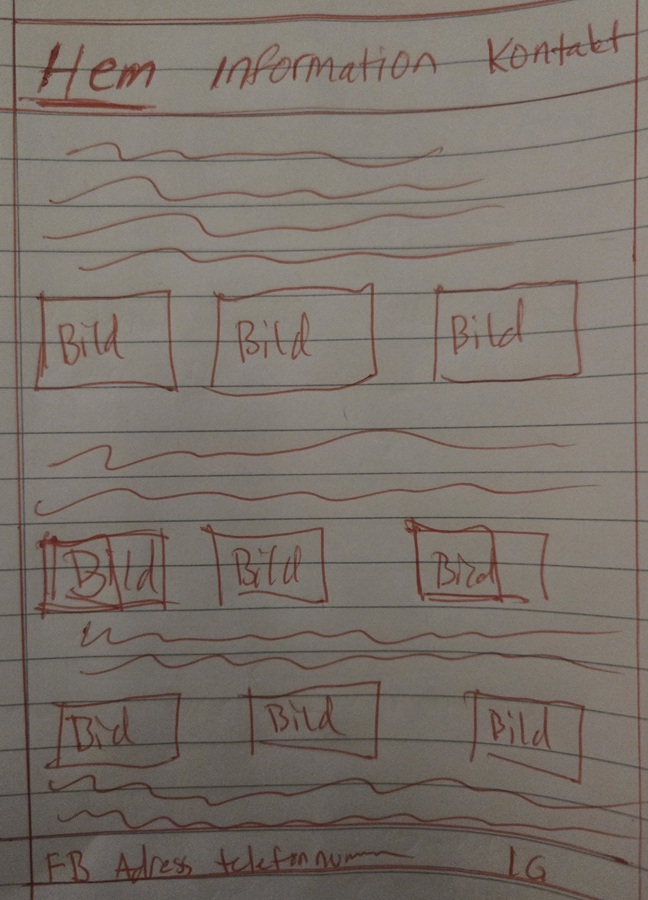 Hem Information Kontakt
Bild Bild Bild
Bild Bild Bild
Bild Bild Bild
FB Adress telefonnum IG